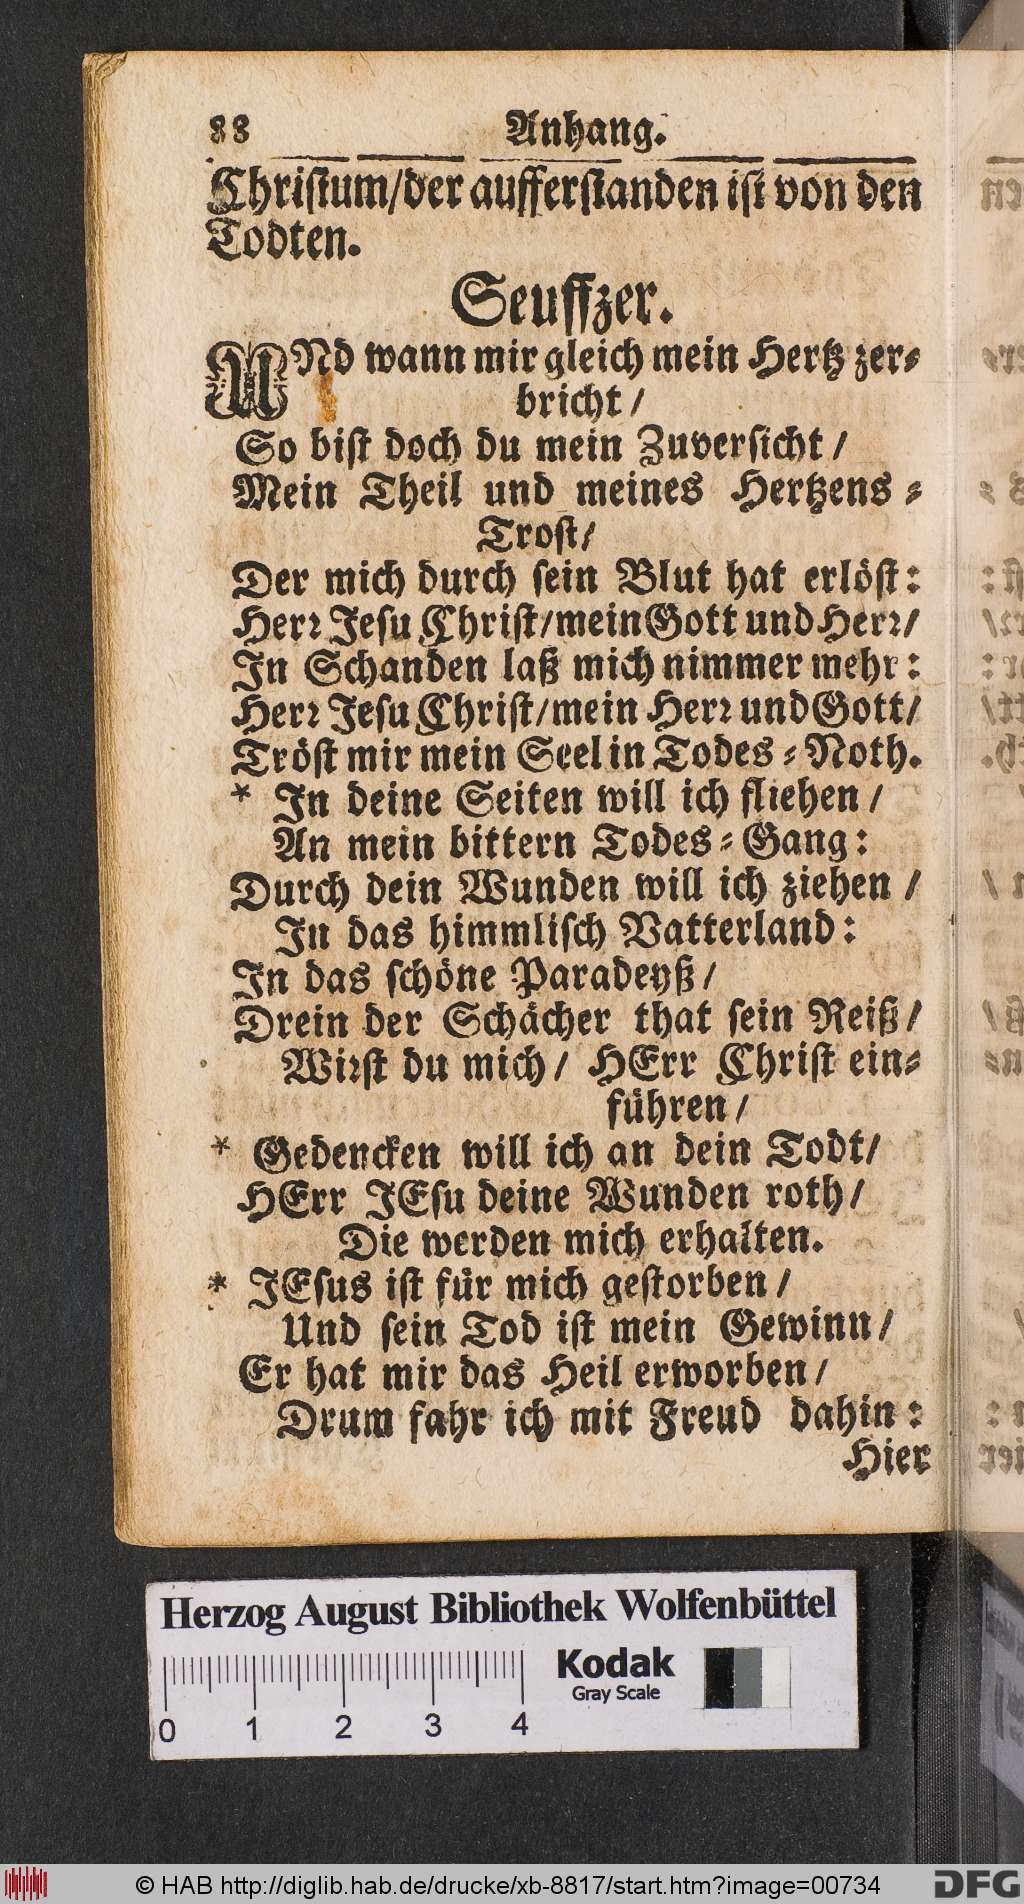 88 Anhang.
Christum/der aufferstanden ist von den
Todten.
Seuffzer.
UNd wann mir gleich mein Hertz zer-
bricht /
So bist doch du mein Zuversicht /
Mein Theil und meines Hertzens-
Trost/
Der mich durch sein Blut hat erlöst:
Herr Jesu Christ/mein Gott und Herr/
In Schanden laß mich nimmer mehr:
Herr Jesu Christ/mein Herr und Gott/
Tröst mir mein Seel in Todes-Noth.
* In deine Seiten will ich fliehen /
An mein bittern Todes-Gang:
Durch dein Wunden will ich ziehen /
In das himmlisch Vatterland:
In das schöne Paradeyß /
Drein der Schächer that sein Reiß /
Wirst du mich / HErr Christ ein-
führen /
* Gedencken will ich an dein Todt/
HErr JEsu deine Wunden roth/
Die werden mich erhalten.
* JEsus ist für mich gestorben /
Und sein Tod ist mein Gewinn/
Er hat mir das Heil erworben /
Drum fahr ich mit Freud dahin:
Hier
Herzog August Bibliothek Wolfenbüttel
Kodak
Gray Scale
0 1 2 3 4
© HAB http://diglib.hab.de/drucke/xb-8817/start.htm?image=00734
DFG